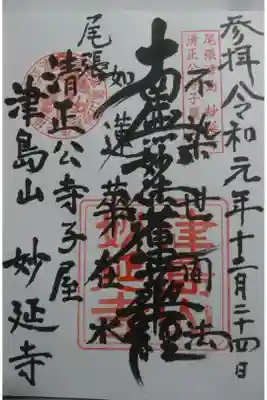 参拝令和元年十二月二十四日
不染世間法
南無妙法蓮華経
如蓮華在水
尾張
清正公寺子屋
津島山 妙延寺
津島山
妙延寺